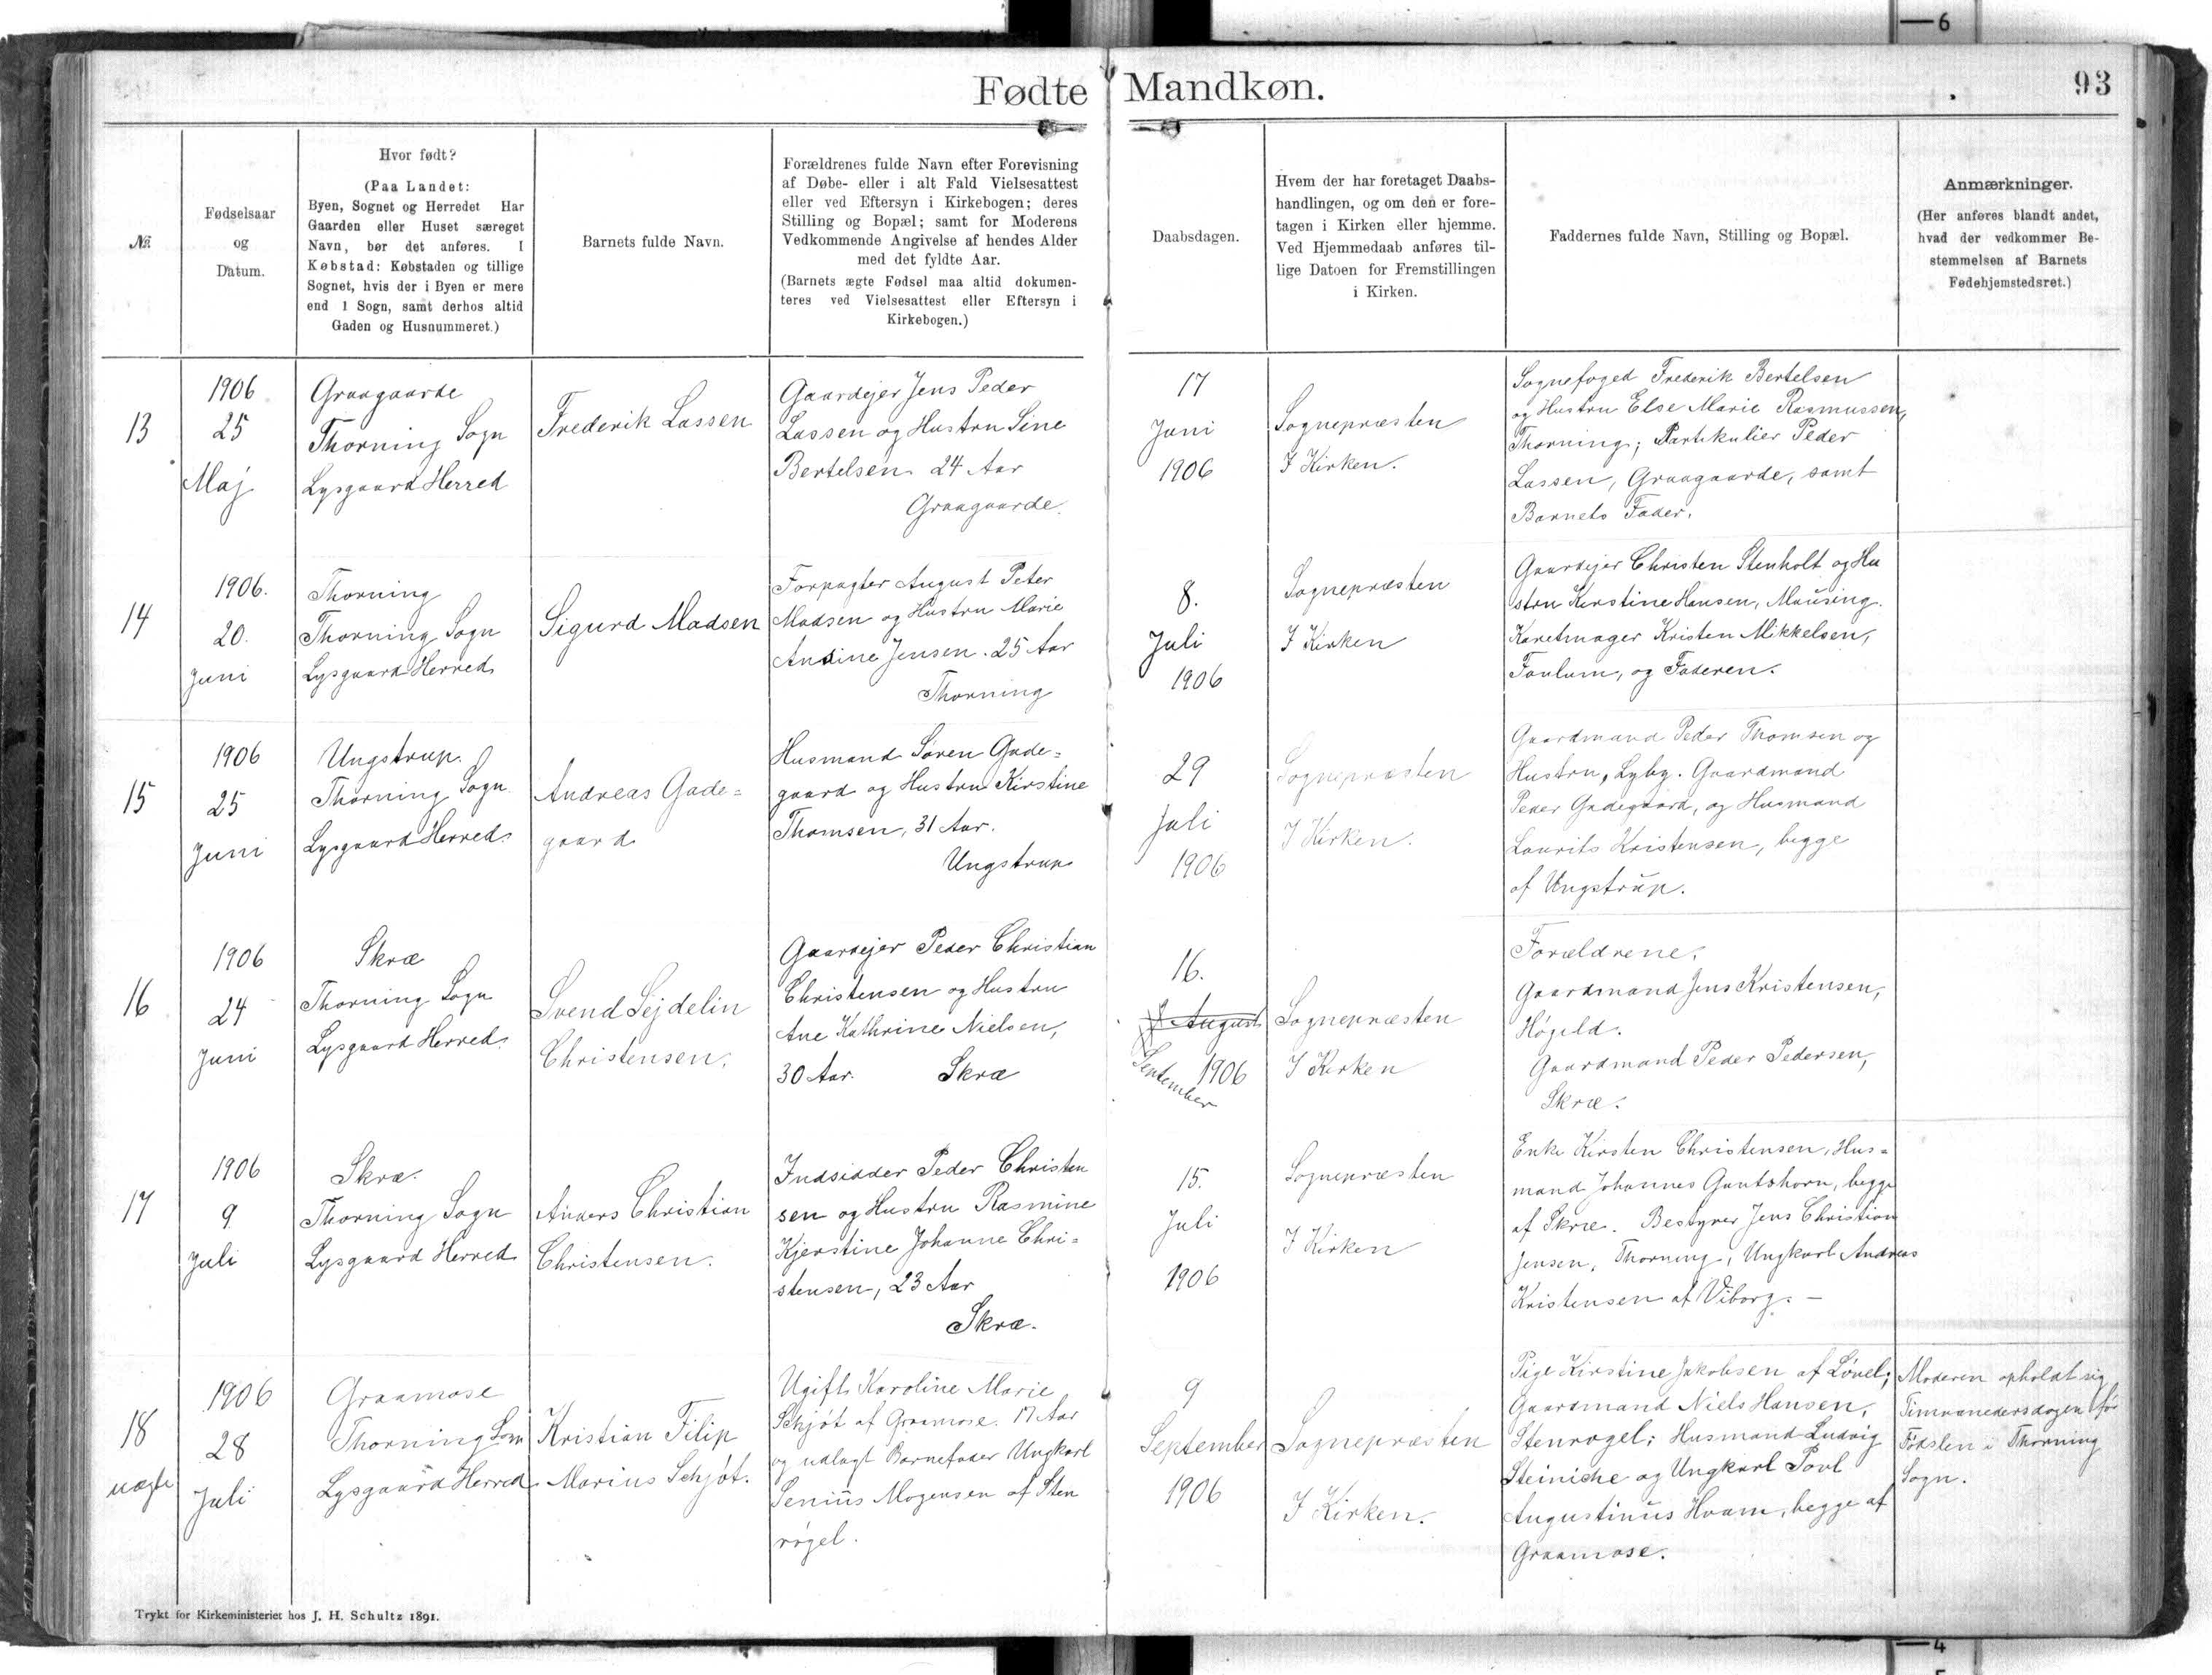 6
Fødte Mandkøn.
93
No.
Fødselsaar
og
Datum.
Hvor født?
(Paa Landet:
Byen, Sognet og Herredet Har
Gaarden eller Huset særeget
Navn, bør det anføres. I
Købstad: Købstaden og tillige
Sognet, hvis der i Byen er mere
end 1 Sogn, samt derhos altid
Gaden og Husnummeret.)
Barnets fulde Navn.
Forældrenes fulde Navn efter Forevisning
af Døbe- eller i alt Fald Vielsesattest
eller ved Eftersyn i Kirkebogen; deres
Stilling og Bopæl; samt for Moderens
Vedkommende Angivelse af hendes Alder
med det fyldte Aar.
(Barnets ægte Fødsel maa altid dokumen-
teres ved Vielsesattest eller Eftersyn i
Kirkebogen.)
Daabsdagen.
Hvem der har foretaget Daabs-
handlingen, og om den er fore-
tagen i Kirken eller hjemme.
Ved Hjemmedaab anføres til-
lige Datoen for Fremstillingen
i Kirken.
Faddernes fulde Navn, Stilling og Bopæl.
Anmærkninger.
(Her anføres blandt andet,
hvad der vedkommer Be-
stemmelsen af Barnets
Fødehjemstedsret.)
13
1906
25
Maj
Graagaarde
Thorning Sogn
Lysgaard Herred
Frederik Lassen
Gaardejer Jens Peder
Lassen og Hustru Sine
Bertelsen 24 Aar
Graagaarde.
17
Juni
1906
Sognepræsten
I Kirken.
Sognefoged Frederik Bertelsen
og Hustru Else Marie Rasmussen,
Thorning; Partikulier Peder
Lassen, Graagaarde, samt
Barnets Fader.
14
1906.
20.
Juni
Thorning
Thorning Sogn
Lysgaard Herred
Sigurd Madsen
Forpagter August Peter
Madsen og Hustru Marie
Andine Jensen. 25 Aar
Thorning
8.
Juli
1906
Sognepræsten
I Kirken
Gaardejer Christen Stenholt og Hu
stru Kirstine Hansen, Mausing.
Karetmager Kristen Mikkelsen,
Foulum, og Faderen.
15
1906
25
Juni
Ungstrup.
Thorning Sogn
Lysgaard Herred.
Andreas Gade=
gaard
Husmand Søren Gade=
gaard og Hustru Kirstine
Thomsen, 31 Aar.
Ungstrup
29
Juli
1906
Sognepræsten
I Kirken.
Gaardmand Peder Thomsen og
Hustru, Lyby. Gaardmand
Peder Gadegaard, og Husmand
Laurits Kristensen, begge
af Ungstrup.
16
1906
24
Juni
Skræ
Thorning Sogn
Lysgaard Herred.
Svend Sejdelin
Christensen.
Gaardejer Peder Christian
Christensen og Hustru
Ane Kathrine Nielsen,
30 Aar. Skræ
16.
August
September 1906
Sognepræsten
I Kirken
Forældrene.
Gaardmand Jens Kristensen,
Høgild.
Gaardmand Peder Pedersen,
Skræ.
17
1906
9
Juli
Skræ.
Thorning Sogn
Lysgaard Herred
Anders Christian
Christensen.
Indsidder Peder Christen
sen og Hustru Rasmine
Kjerstine Johanne Chri=
stensen, 23 Aar
Skræ.
15.
Juli
1906
Sognepræsten
I Kirken
Enke Kirsten Christensen, Hus=
mand Johannes Gantshorn, begge
af Skræ. Bestyrer Jens Christian
Jensen, Thorning, Ungkarl Andreas
Kristensen af Viborg. –
18
uægte
1906
28
Juli
Graamose
Thorning Sogn
Lysgaard Herred
Kristian Filip
Marius Schjøt.
Ugift Karoline Marie
Schjøt af Graamose. 17 Aar
og udlagt Barnefader Ungkarl
Senius Mogensen af Sten
røgel.
9
September
1906
Sognepræsten
I Kirken.
Pige Kirstine Jakobsen af Løvel;
Gaardmand Niels Hansen,
Stenrøgel; Husmand Ludvig
Steiniche og Ungkarl Povl
Augustinus Hvam, begge af
Graamose.
Moderen opholdt sig
Timaanedersdagen før
Fødslen i Thorning
Sogn.
Trykt for Kirkeministeriet hos J. H. Schultz 1891.
4